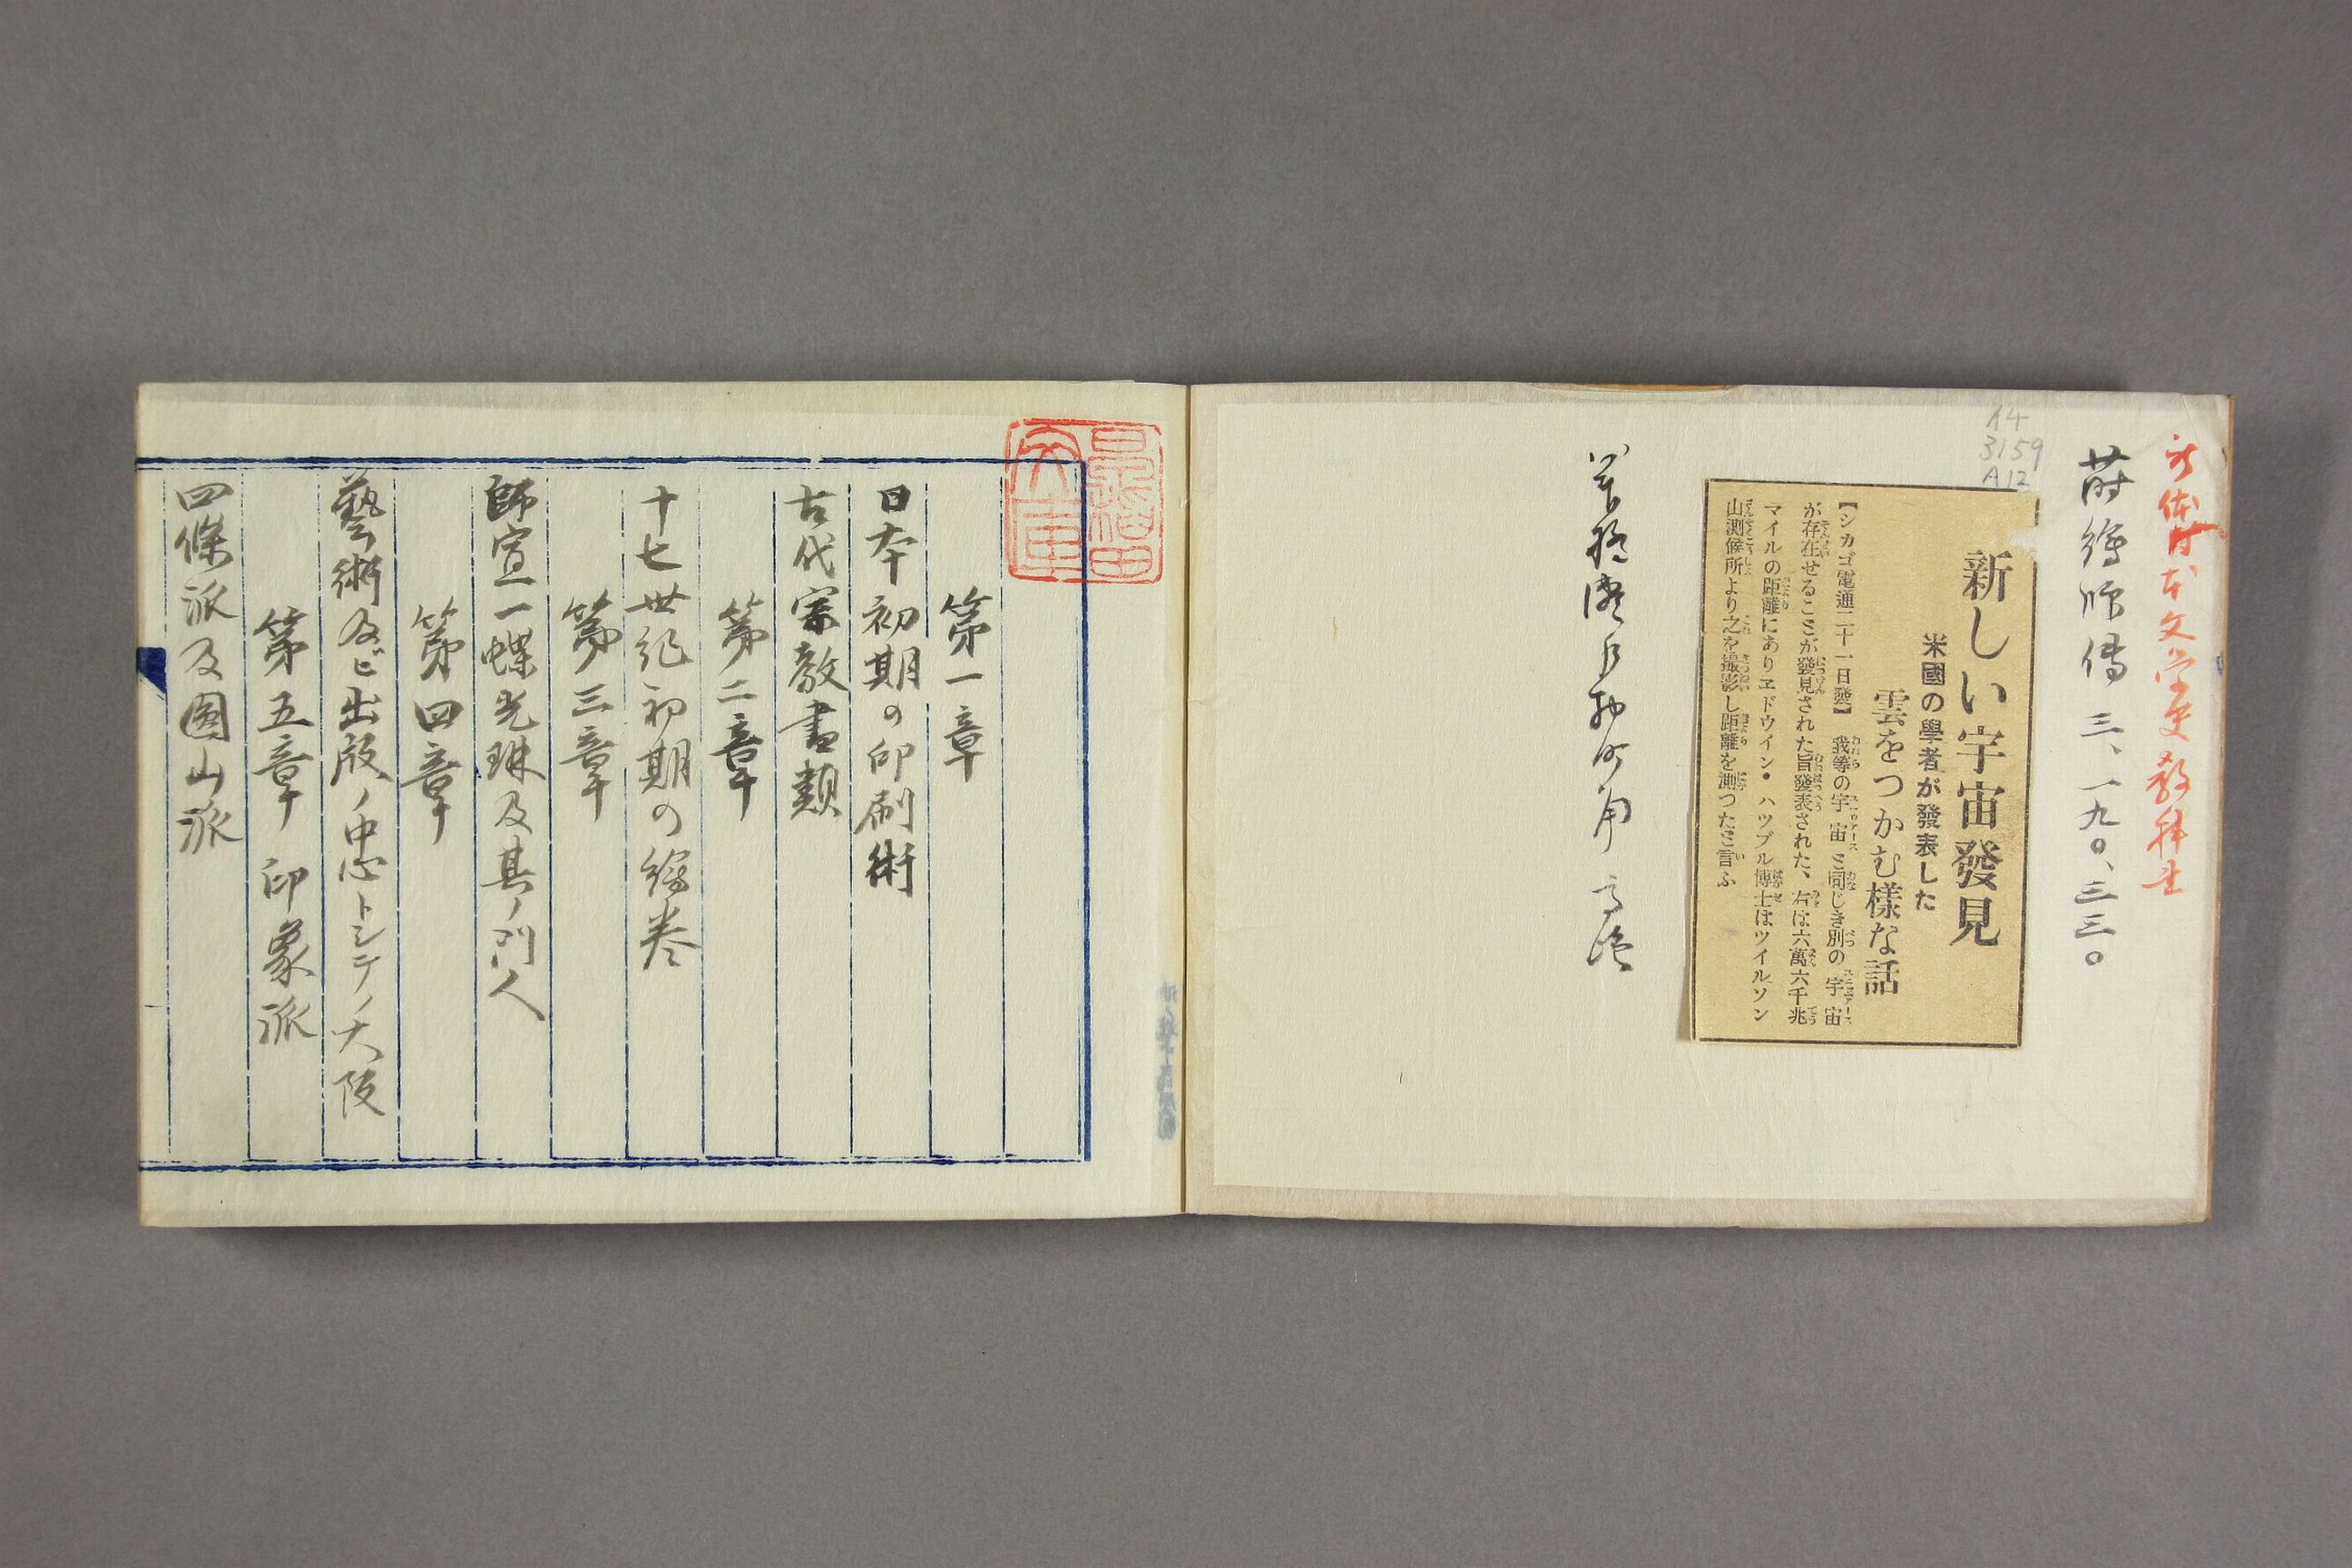 蒔繪師傳 三、一九〇、三三〇
14
3159
A12
新しい宇宙發見
米國の學者が發表した
雲をつかむ樣な話
【シカゴ電通二十一日發】 我等の宇宙と同じき別の宇宙
が存在せることが發見された旨發表された、右は六萬六千兆
マイルの距離にありエドウイン・ハツブル博士はツイルソン
山測候所より之を撮影し距離を測つたと言ふ
第一章
日本初期の印刷術
古代宗教畫類
第二章
十七世紀初期の繪卷
第三章
師宣一蝶光琳及其ノ門人
第四章
藝術及ビ出版ノ中心トシテノ大阪
第五章 印象派
四條派及圓山派